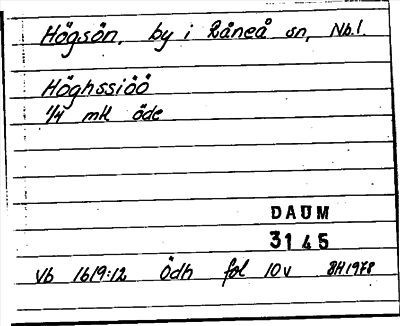 Högsön, by i Råneå sn, Nb.l.
Höghssiöö
1/4 mtl öde
DAUM
3145
Vb 1619:12 Ödh fol 10v BH1978